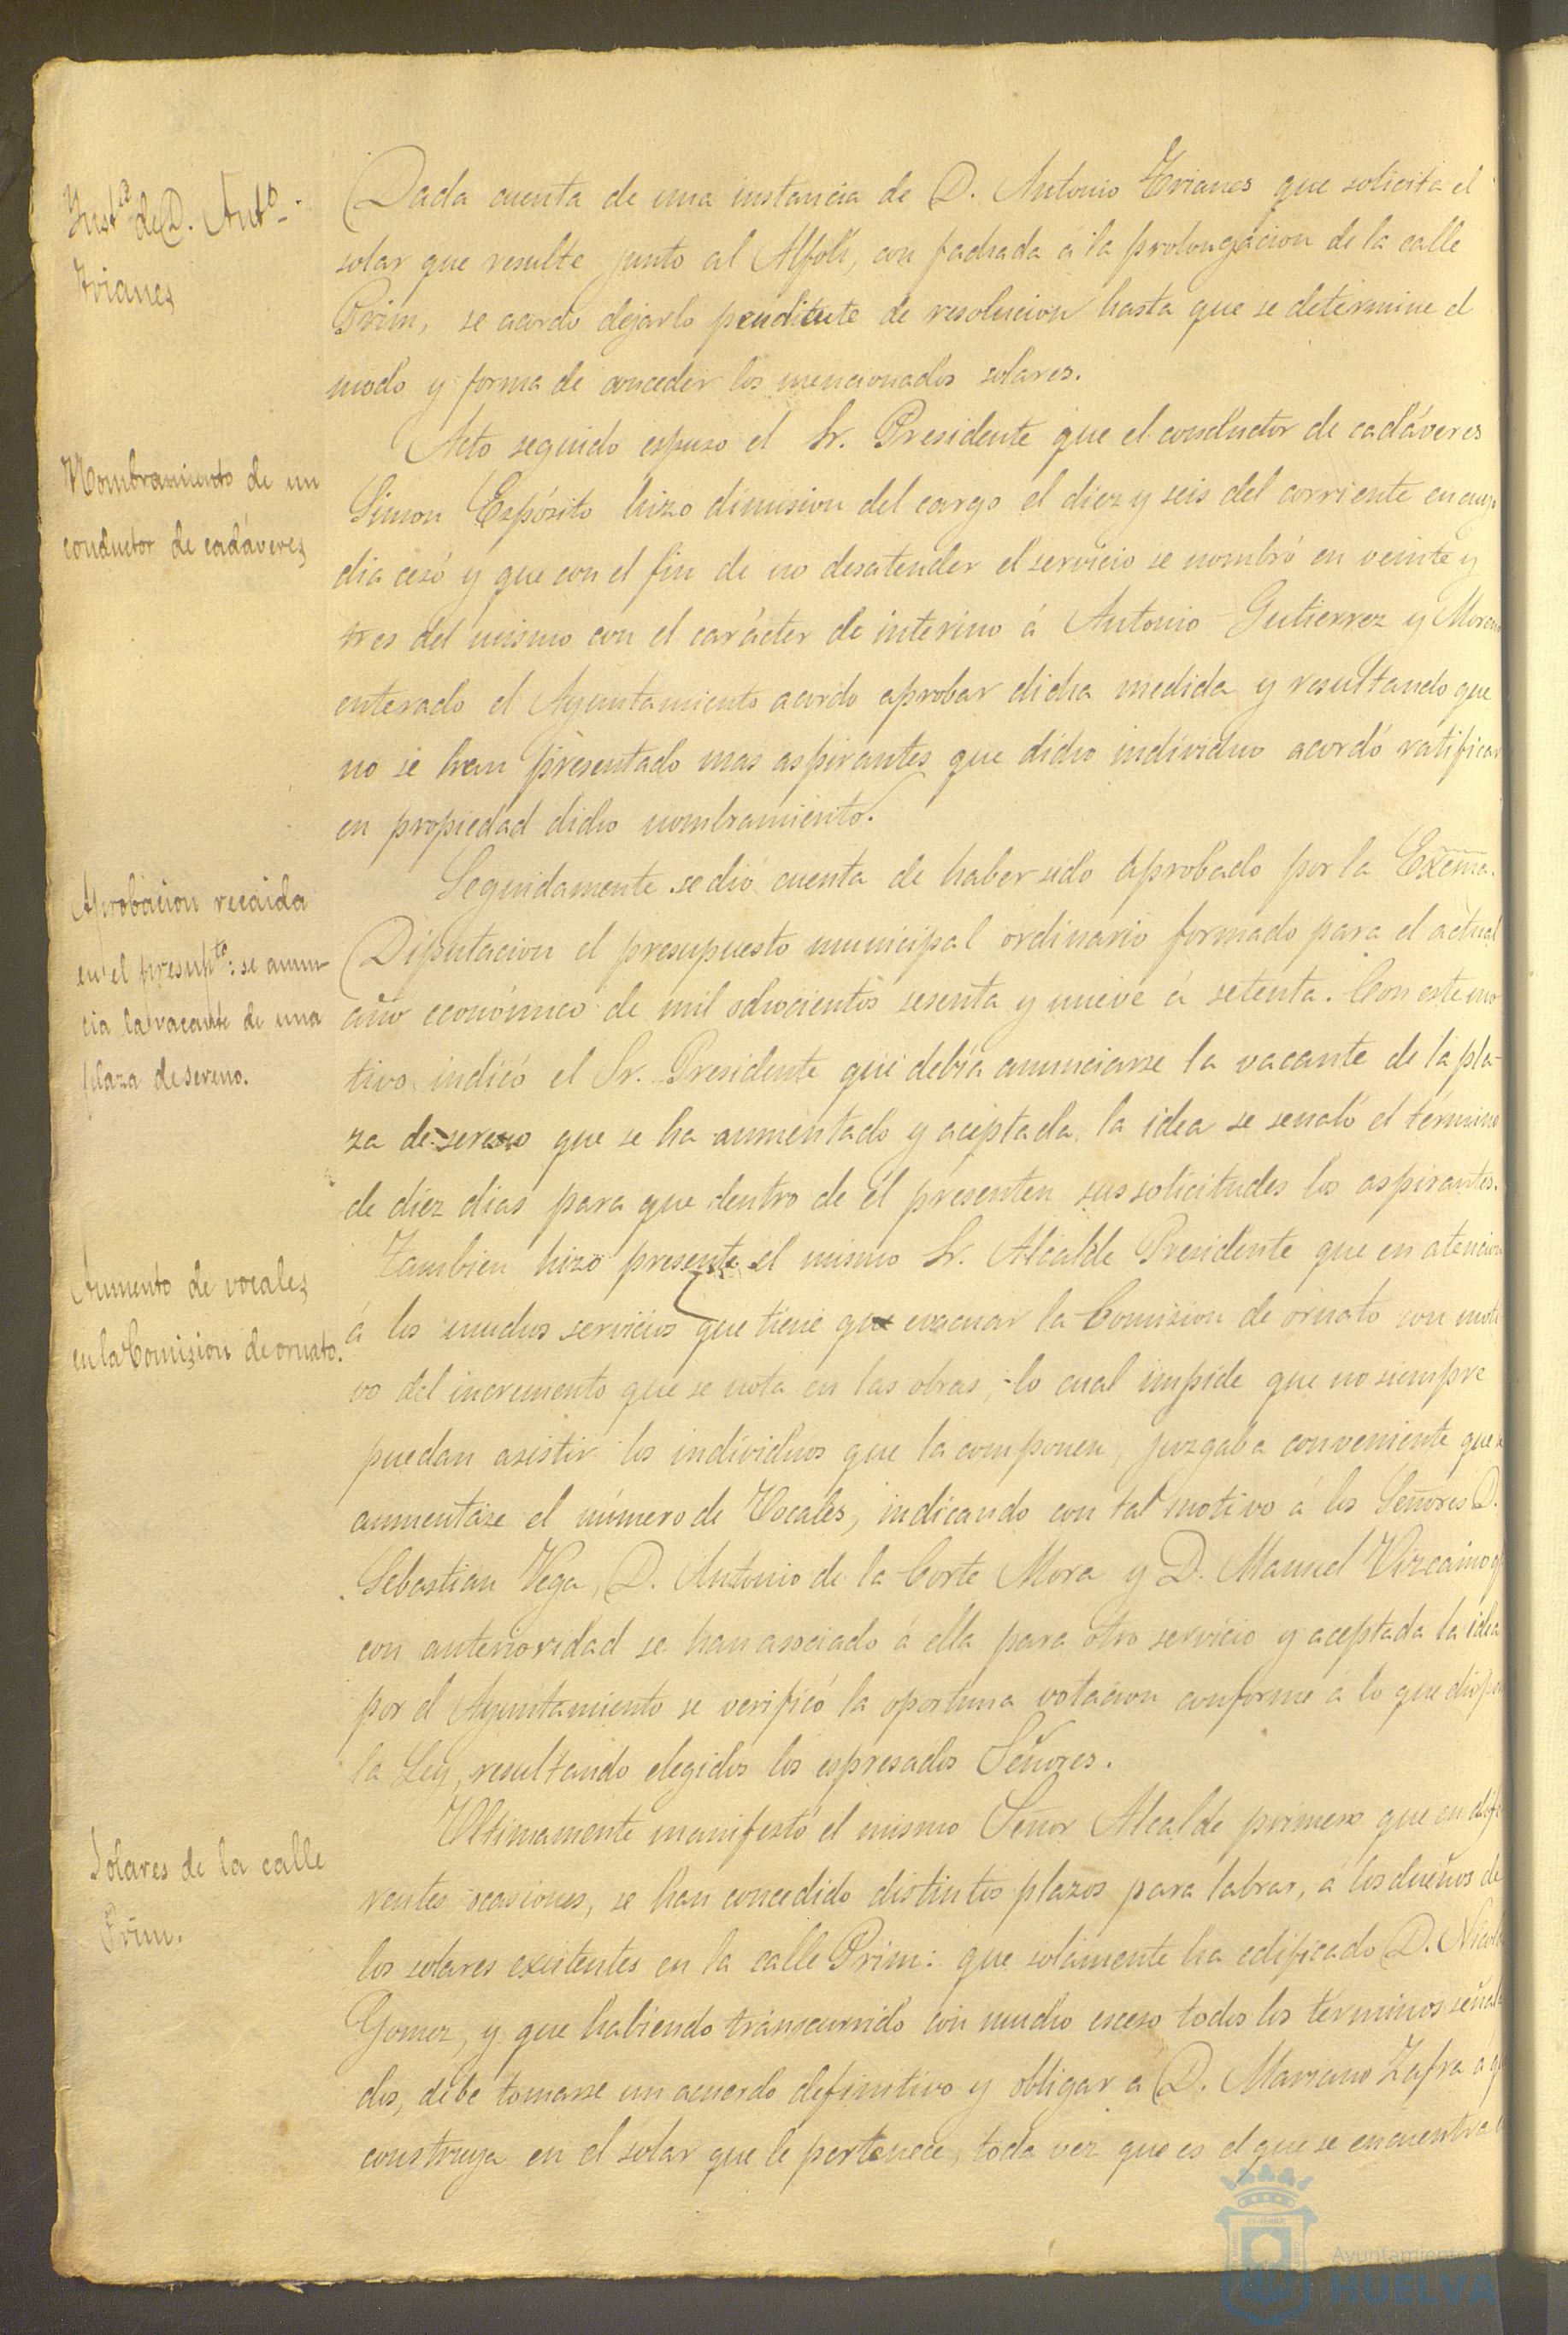 Instª de D. Antº
Trianes
Dada cuenta de una instancia de D. Antonio Trianes que solicita el
solar que resulte junto al Alfolí, con fachada á la prolongacion de la calle
Prim, se acordó dejarlo pendiente de resolucion hasta que se determine el
modo y forma de conceder los mencionados solares.
Nombramiento de un
conductor de cadáveres
Acto seguido espuso el Sr. Presidente que el conductor de cadáveres
Simon Expósito hizo dimision del cargo el diez y seis del corriente en cuyo
dia cesó y que con el fin de no desatender el servicio se nombró en veinte y
tres del mismo con el carácter de interino á Antonio Gutierrez y Moreno
enterado el Ayuntamiento acordó aprobar dicha medida y resultando que
no se han presentado mas aspirantes que dicho individuo acordó ratificar
en propiedad dicho nombramiento.
Aprobacion recaida
en el presupto: se anun-
cia la vacante de una
plaza de sereno.
Seguidamente se dió cuenta de haber sido aprobado por la Excma.
Diputacion el presupuesto municipal ordinario formado para el actual
año económico de mil ochocientos sesenta y nueve á setenta. Con este mo
tivo indicó el Sr. Presidente que debía anunciarse la vacante de la pla-
za de sereno que se ha aumentado y aceptada la idea se señaló el término
de diez dias para que dentro de él presenten sus solicitudes los aspirantes.
Aumento de vocales
en la Comision de ornato.
Tambien hizo presente el mismo Sr. Alcalde Presidente que en atencion
á los muchos servicios que tiene que evacuar la Comision de ornato con moti
vo del incremento que se nota en las obras, lo cual impide que no siempre
puedan asistir los individuos que la componen, juzgaba conveniente que
aumentáse el número de Vocales, indicando con tal motivo á los Señores D.
Sebastian Vega, D. Antonio de la Corte Mora y D. Manuel Vizcaino
con anterioridad se han asociado á ella para otro servicio y aceptada la idea
por el Ayuntamiento se verificó la oportuna votacion conforme á lo que dispo
la Ley, resultando elegidos los espresados Señores.
Solares de la calle
Prim.
Ultimamente manifestó el mismo Señor Alcalde primero que en dife
rentes ocasiones, se han concedido distintos plazos para labrar, á los dueños de
los solares existentes en la calle Prim: que solamente ha edificado D. Nicolas
Gomez, y que habiendo transcurrido con mucho esceso todos los terminos señala
dos, debe tomarse un acuerdo definitivo y obligar á D. Mariano Zafra a
construya en el solar que le pertenece, toda vez que es el que se encuentra
Ayuntamiento de
HUELVA